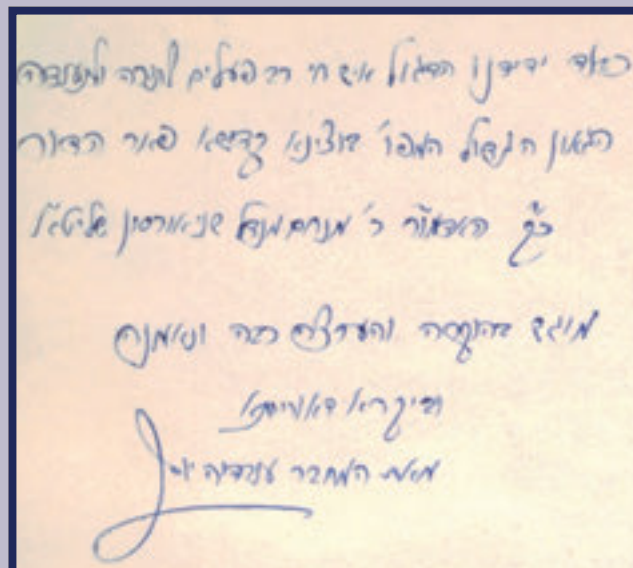 כבוד ידידנו הדגול איש חי רב פעלים לתורה ולתעודה
הגאון הגדול המפו' בוצינא קדישא פאר הדור
כ"ק האדמו"ר ר' מנחם מנדל שניאורסון שליט"א
מוגש בהוקרה והערצה רבה ונאמנה
וביקרא דאורייתא
מאת המחבר עובדיה יוסף